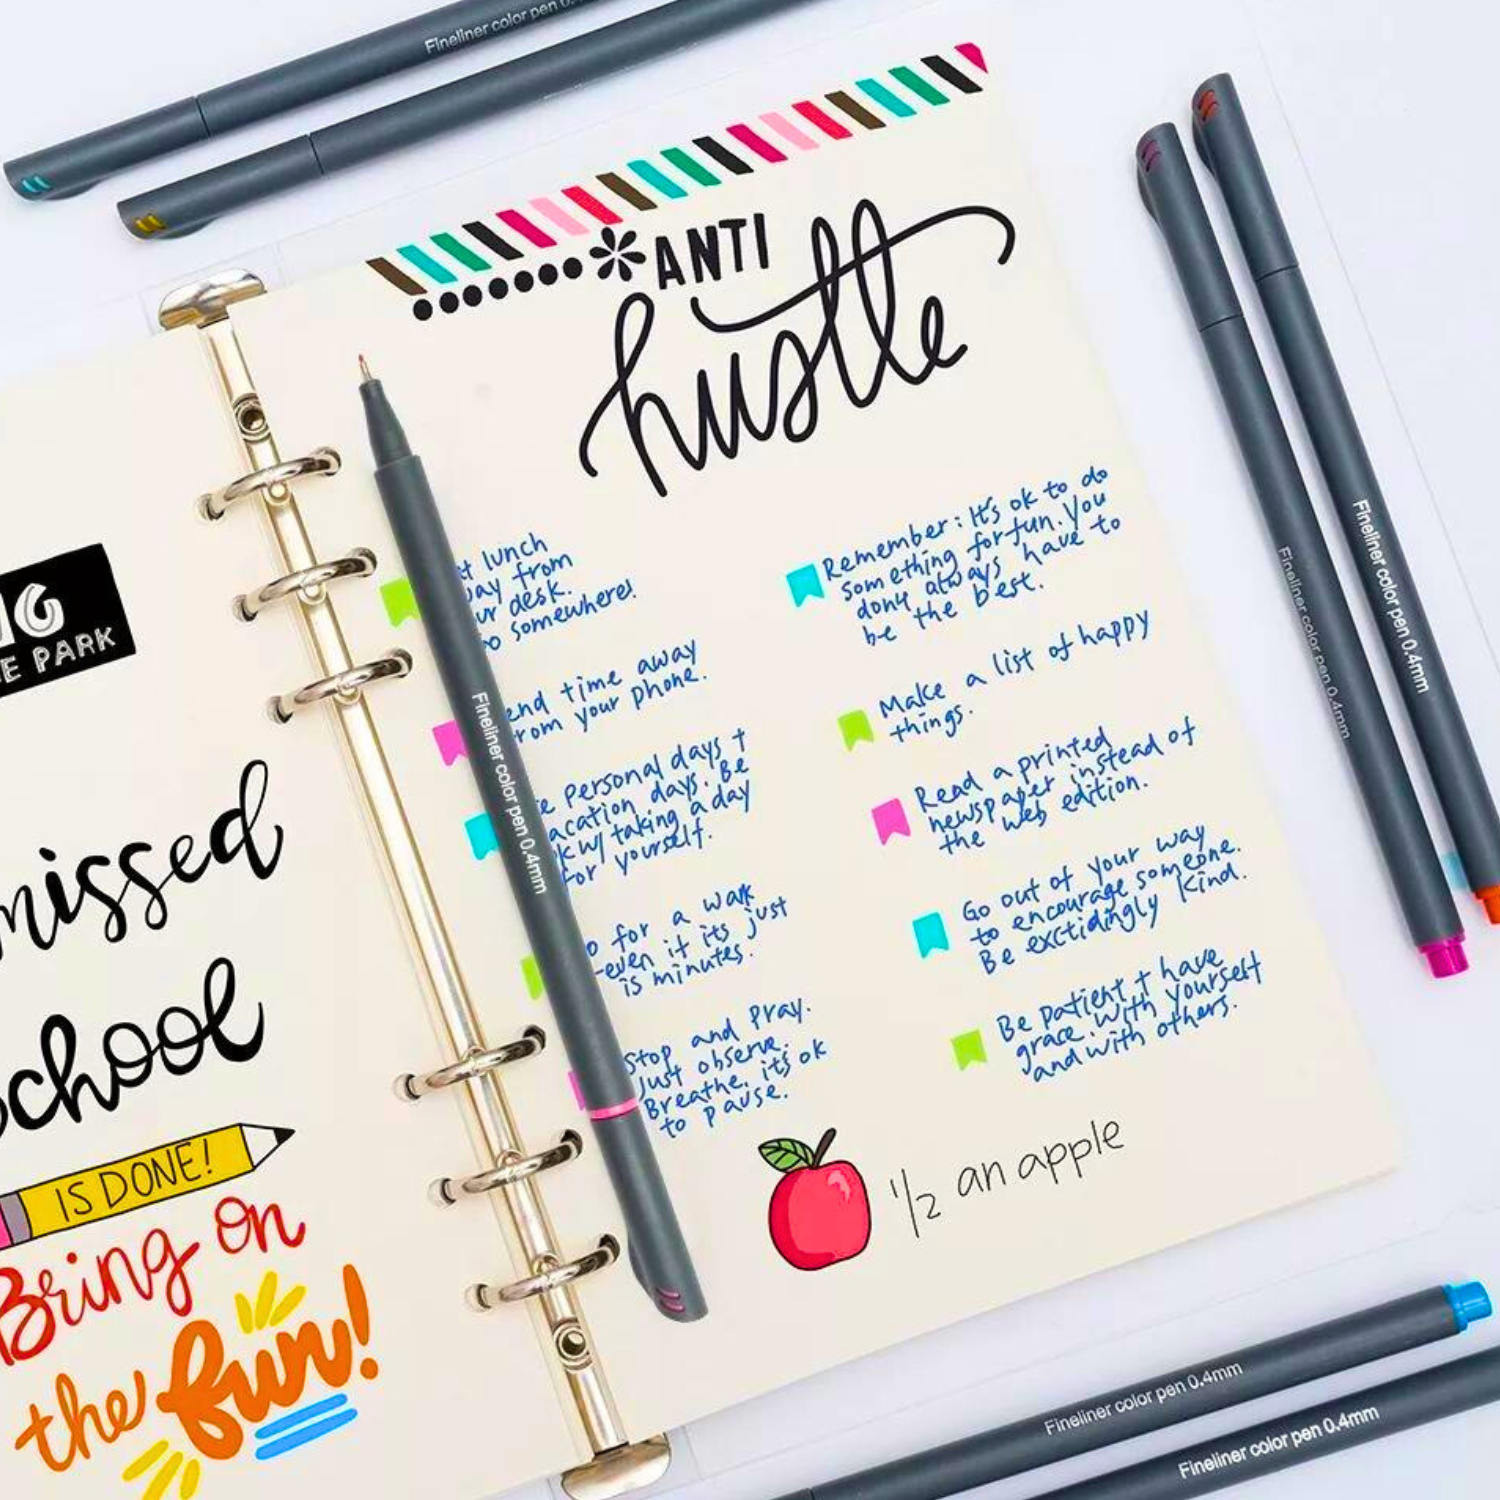 Fineliner color pen 0.
ANTI
hustle
E PARK
missed
school
IS DONE!
Bring on
the fun!
lunch
from
desk.
somewhere!
time away
your phone.
personal days +
days. Be
w/ taking a day
for yourself.
for a walk
-even if its just
is minutes.
Stop and Pray.
Just observe.
Breathe, it's ok
to pause.
Remember: It's ok to do
something for fun. You
don't always have to
be the best.
Make a list of happy
things.
Read a printed
newspaper instead of
the web edition.
Go out of your way
to encourage someone.
Be exctidingly kind.
Be patient + have
grace with yourself
and with others.
1/2 an apple
Fineliner color pen 0.4mm
Fineliner color pen 0.4mm
Fineliner color pen 0.4mm
Fineliner color pen 0.4mm
Fineliner color pen 0.4mm